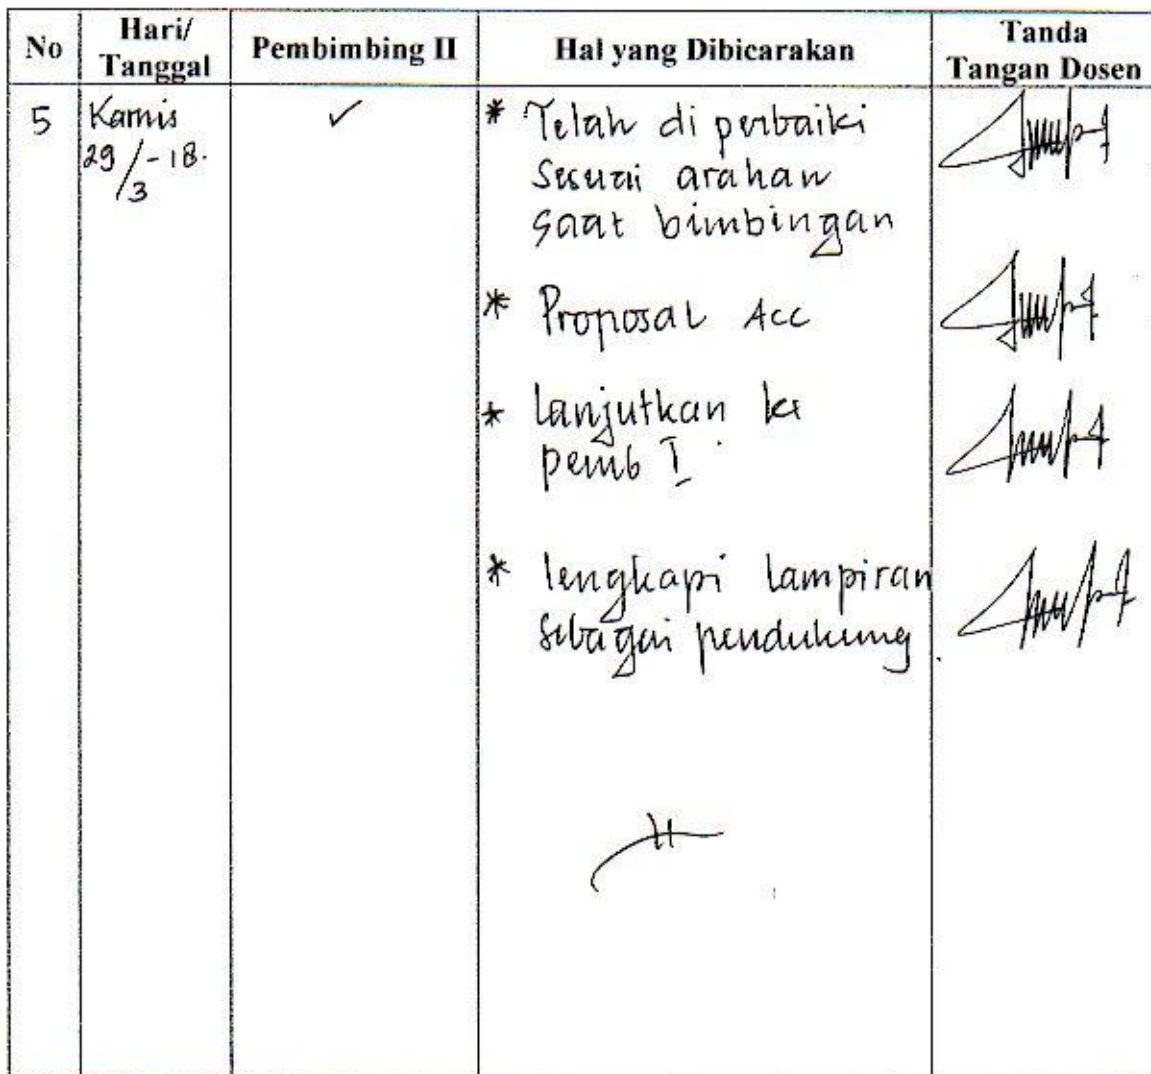 No Hari/ Tanggal Pembimbing II Hal yang Dibicarakan Tanda Tangan Dosen
5 Kamis ✓ * Telah di perbaiki
29/3-18. sesuai arahan
saat bimbingan
* Proposal Acc
* lanjutkan ke
pemb I
* lengkapi lampiran
sebagai pendukung.